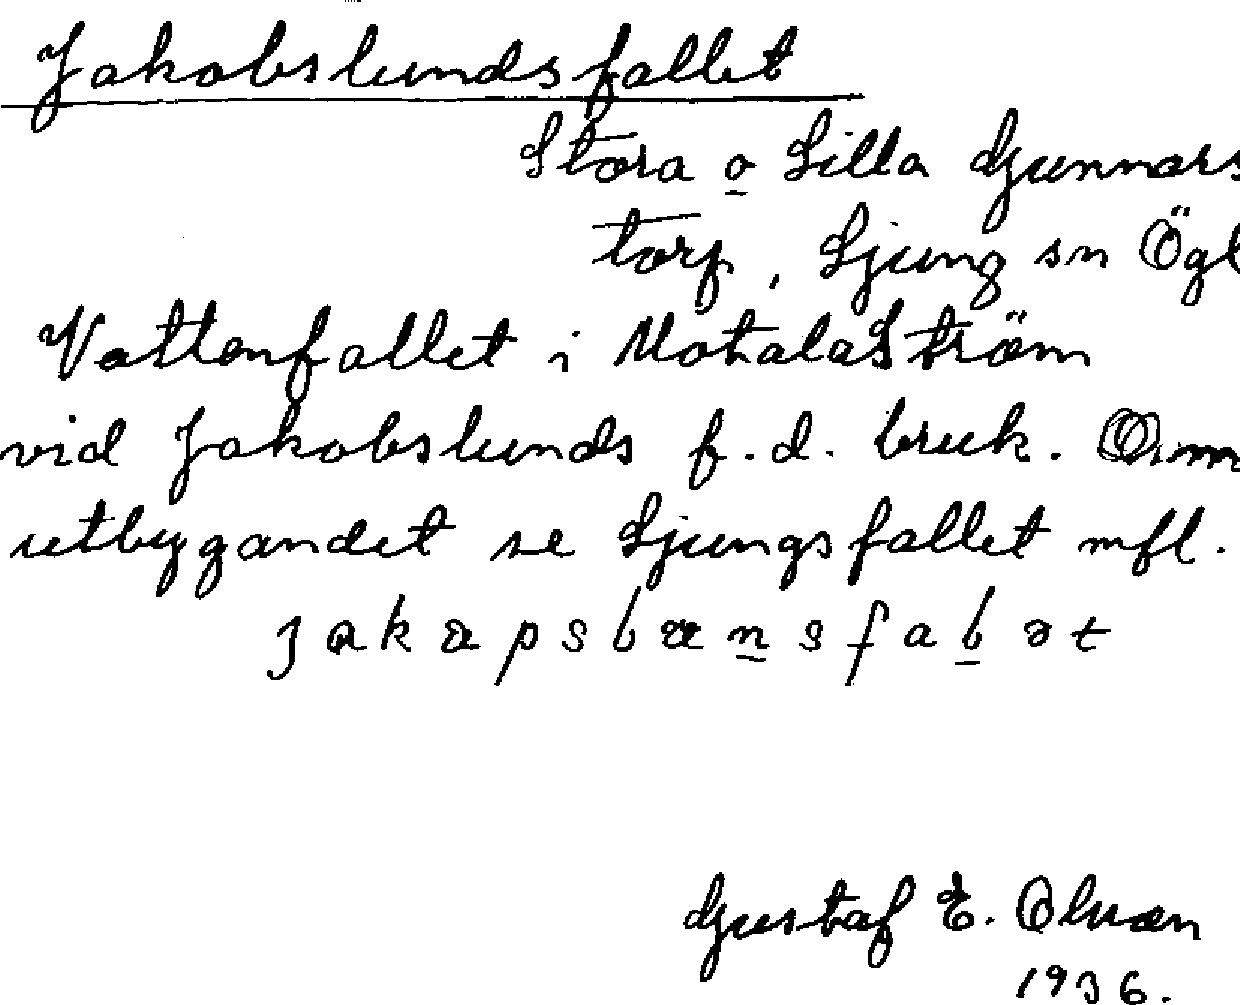 Jakobslundsfallet
Stora o Lilla Gunnars
torp, Ljung sn Ögl
Vattenfallet i MotalaStröm
vid Jakobslunds f.d. bruk. Om
utbygandet se Ljungsfallet mfl.
Gustaf E. Olvæn
1936.